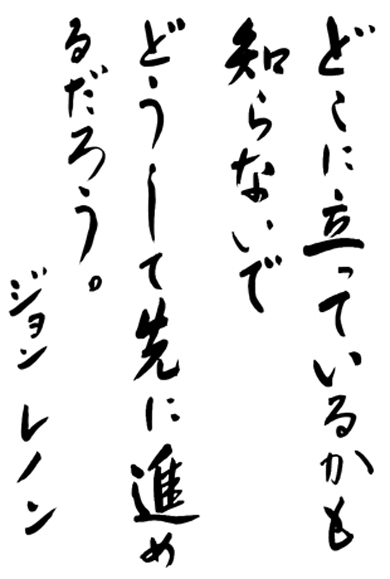 どこに立っているかも
知らないで
どうして先に進め
るだろう。
ジョン レノン